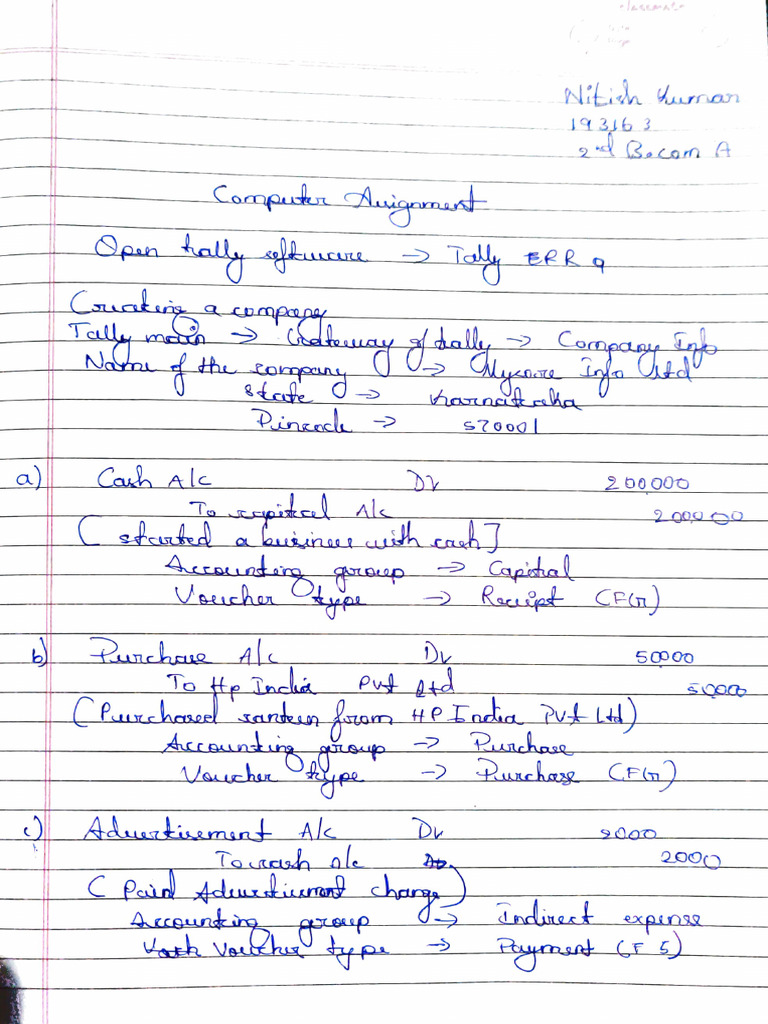 Nitish Kumar
193163
2nd B.com A
Computer Assignment
Open tally software → Tally ERR 9
Creating a company
Tally main → Gateway of tally → Company Info
Name of the company → Mysore Info Ltd
State → Karnataka
Pincode → 570001
a) Cash A/c Dr 200000
To capital A/c 200000
( started a business with cash ]
Accounting group → Capital
Voucher type → Receipt
b) Purchase A/c Dr 50000
To Hp India Pvt Ltd 50000
( Purchased from HP India Pvt Ltd )
Accounting group → Purchase
Voucher type → Purchase
c) Advertisement A/c Dr 2000
To cash A/c 2000
( Paid Advertisment charge )
Accounting group → Indirect expense
Voucher type → Payment (F 5)